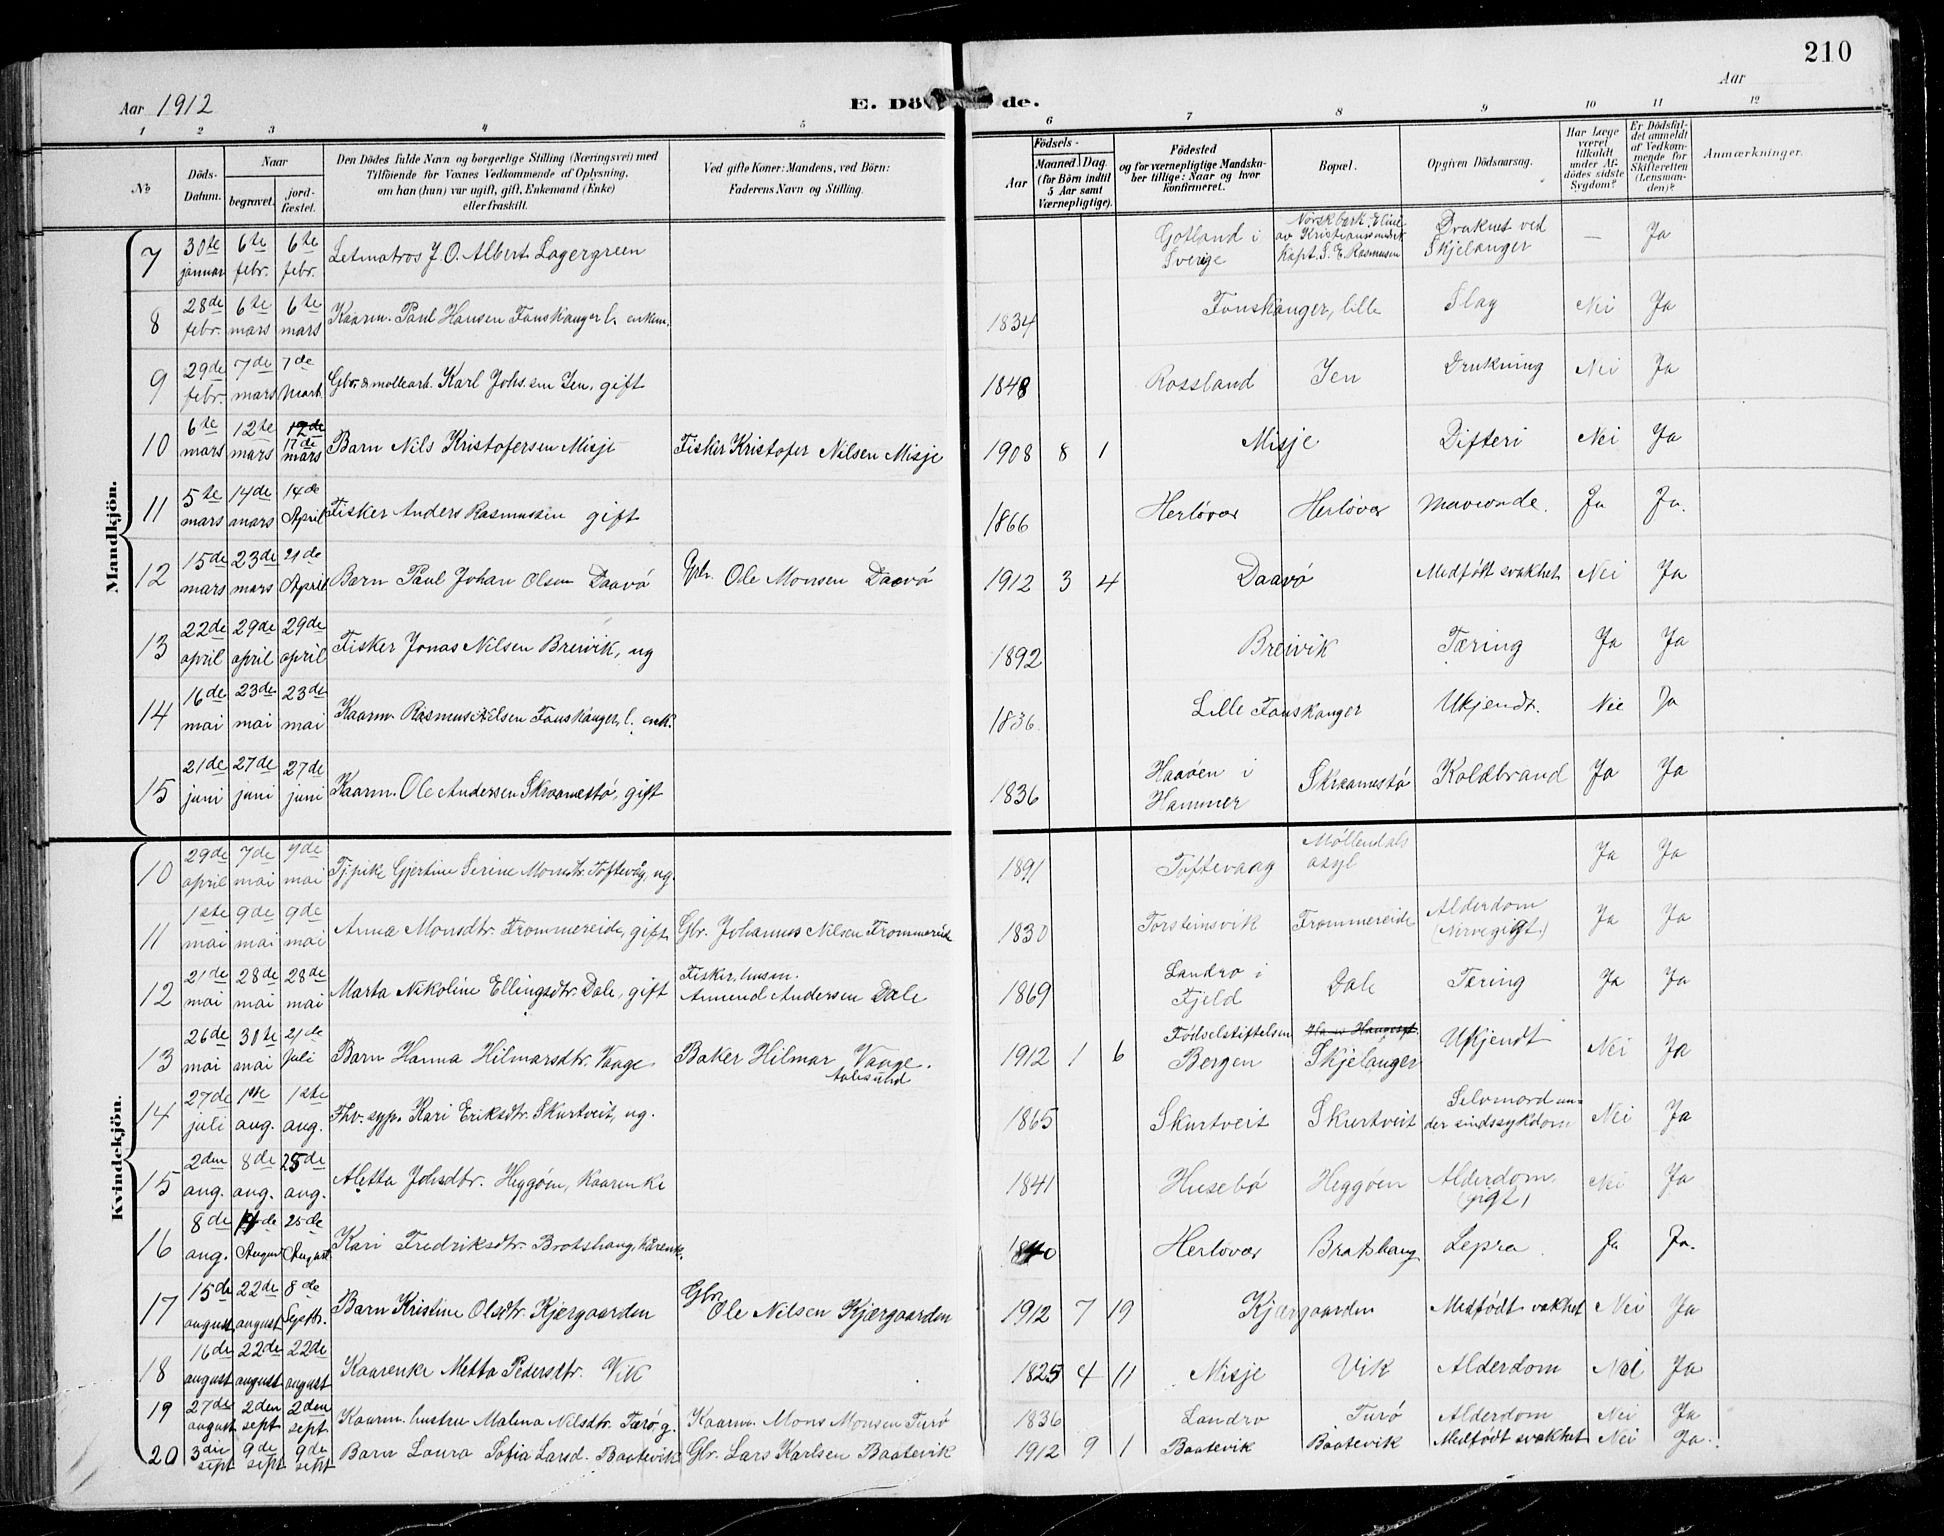 210
Aar 1912
E. Dö de.
Aar
1 2 3 4 5 6 7 8 9 10 11 12
No
Döds-Datum.
Naar
begravet.
jord-fæstet.
Den Dödes fulde Navn og borgerlige Stilling (Næringsvei) med
Tilföiende for Voxnes Vedkommende af Oplysning,
om han (hun) var ugift, gift, Enkemand (Enke)
eller fraskilt.
Ved gifte Koner: Mandens, ved Börn:
Faderens Navn og Stilling.
Födsels-
Aar
Maaned. Dag.
(for Börn indtil
5 Aar samt
Værnepligtige).
Födested
og for værnepligtige Mandska-
ber tillige: Naar og hvor
konfirmeret.
Bopæl.
Opgiven Dödsaarsag.
Har Læge
været
tilkaldt
under Af-
dödes sidste
Sygdom?
Er Dödsfal-
det anmeldt
af Vedkom-
mende for
Skifteretten
(Lensman-
den)?
Anmærkninger.
Mandkjön.
7 30te januar 6te febr. 6te febr. Letmatros J. O. Albert Lagergreen Gotland i Sverige Norsk bark "Eline" av Kristianssund Kapt. S. E. Rasmusen Druknet ved Skjelanger — Ja
8 28de febr. 6te mars 6te mars Kaarm. Paul Hansen Fonskanger l. enkem. 1834 Fonskanger, lille Slag Nei Ja
9 29de febr. 7de mars 7de Mart. Gbr. & møllearb. Karl Johs.sen Jen, gift 1848 Rossland Jen Drukning Nei Ja
10 6te mars 12te mars 17de mars Barn Nils Kristofersen Misje Fisker Kristofer Nilsen Misje 1908 8 1 Misje Difteri Nei Ja
11 5te mars 14de mars 14de April Fisker Anders Rasmussen gift 1866 Herløvær Herløvær Maveonde. Ja Ja.
12 15de mars 23de mars 21de April Barn Paul Johan Olsen Daavø Gbr. Ole Monsen Daavø 1912 3 4 Daavø Medfødt svakhet Nei Ja
13 22de april 29de april 29de april Fisker Jonas Nilsen Breivik, ug 1892 Breivik Tæring Ja Ja
14 16de mai 23de mai 23de mai Kaarm Rasmus Nilsen Fonskanger, l. enk. 1836 Lille Fonskanger Ukjendt. Nei Ja
15 21de juni 27de juni 27de juni Kaarm. Ole Andersen Skraamestø, gift 1836 Haaøen i Hammer Skraamestø Koldbrand Ja Ja
Kvindekjön.
10 29de april 7de mai 7de mai Tjpike Gjertine Serine Monsdtr. Toftevåg, ug. 1891 Toftevaag Møllendals asyl Ja Ja
11 1ste mai 9de mai 9de mai Anna Monsdtr. Frommereide, gift Gbr. Johannes Nilsen Frommereide 1830 Torsteinsvik Frommereide Alderdom (Nervegigt) Ja Ja
12 21de mai 28de mai 28de mai Marta Nikoline Ellingsdtr. Dale, gift Fisker, husm. Anmund Andersen Dale 1869 Landro i Fjeld Dale Tæring Ja Ja
13 26de mai 30te mai 21de juli Barn Hanna Hilmarsdtr. Vaage Baker Hilmar Vaage. Aalesund 1912 1 6 Fødselstiftelsen Bergen Skjelanger Ukjendt Nei Ja
14 27de juli 1ste aug. 1ste aug. Fhv. syp. Kari Eriksdtr. Skurtveit, ug. 1865 Skurtveit Skurtveit Selvmord under sindssykdom Nei Ja
15 2den aug. 8de aug. 25de aug. Aletta Johsdtr. Heggøen, kaarenke 1841 Husebø Heggøen Alderdom. (gigt) Nei Ja
16 8de aug. 14de August 25de August. Kari Fredriksdtr. Bratshaug, kårenk. 1840 Herløvær Bratshaug Lepra. Ja Ja.
17 15de august 22de august 8de Septbr. Barn Kristine Olsdtr. Kjærgaarden Gbr. Ole Nilsen Kjærgaarden 1912 7 19 Kjærgaarden Medfødt svakhet Nei Ja
18 16de august 22de august 22de august Kaarenke Metta Pedersdtr. Vik 1825 4 11 Misje Vik Alderdom Nei Ja
19 27de august 2den sept. 2den sept. Kaarm. hustru Malena Nilsdtr. Turø g. Kaarm. Mons Monsen Turø 1836 Landro Turø Alderdom Nei Ja
20 3die sept 9de sept 9de sept Barn Laura Sofia Larsd. Baatevik Gbr. Lars Karlsen Baatevik 1912 9 1 Baatevik Baatevik Medfødt svakhet Nei Ja.